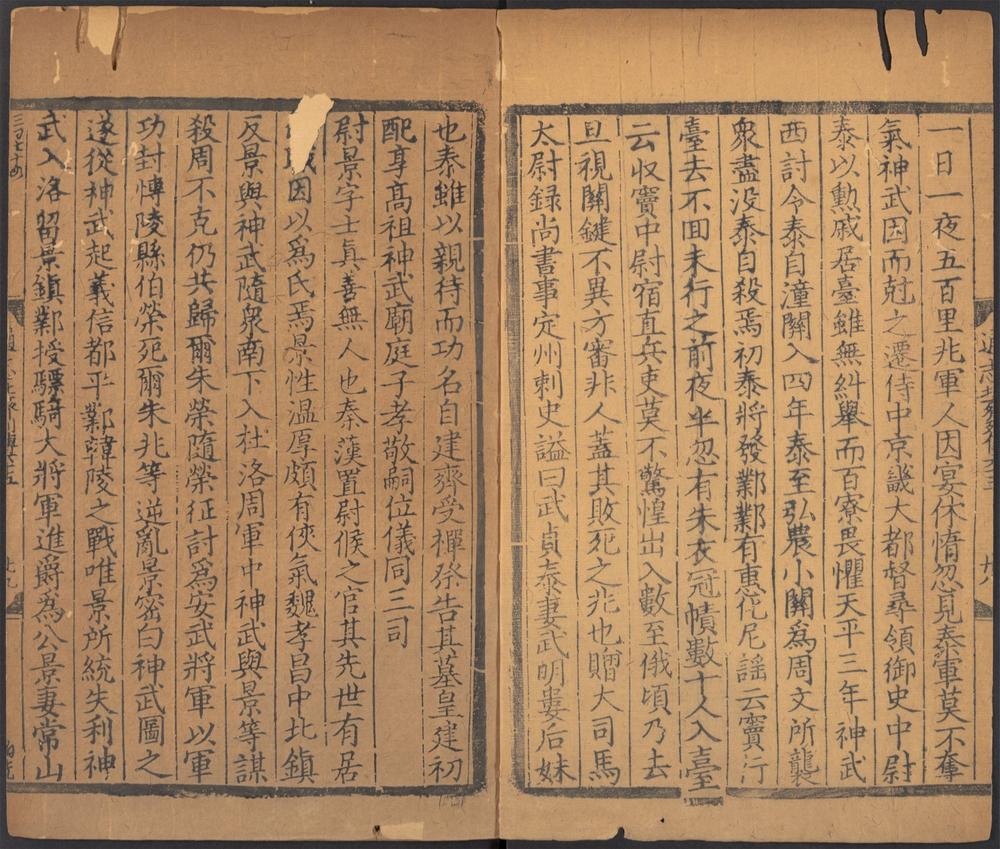 一日一夜五百里兆軍人因宴休惰忽見泰軍莫不奪
氣神武因而尅之遷侍中京畿大都督尋領御史中尉
泰以勲戚居臺雖無糾舉而百寮畏懼天平三年神武
西討令泰自潼關入四年泰至弘農小關爲周文所襲
衆盡没泰自殺焉初泰將發鄴鄴有惠化尼謡云竇行
臺去不囬未行之前夜半忽有朱衣冠幘數十人入臺
云收竇中尉宿直兵吏莫不驚惶出入數至俄頃乃去
旦視關鍵不異方審非人蓋其敗死之兆也贈大司馬
太尉録尚書事定州刺史謚曰武貞泰妻武明婁后妹
也泰雖以親待而功名自建齊受禪祭告其墓皇建初
配享髙祖神武廟庭子孝敬嗣位儀同三司
尉景字士真善無人也秦漢置尉候之官其先世有居
因以爲氏焉景性温厚頗有俠氣魏孝昌中北鎮
反景與神武隨衆南下入杜洛周軍中神武與景等謀
殺周不克仍共歸爾朱榮隨榮征討爲安武將軍以軍
功封愽陵縣伯榮死爾朱兆等逆亂景密白神武圖之
遂從神武起義信都平鄴韓陵之戰唯景所統失利神
武入洛留景鎮鄴授驃騎大將軍進爵爲公景妻常山